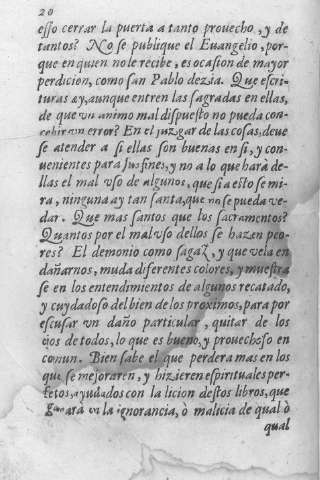 20
esso cerrar la puerta a tanto prouecho, y de
tantos? No se publique el Euangelio, por-
que en quien no le recibe, es ocasion de mayor
perdicion, como san Pablo dezia. Que escri-
turas ay, aunque entren las sagradas en ellas,
de que vn animo mal dispuesto no pueda con-
cebir vn error? En el juzgar de las cosas, deue
se atender a si ellas son buenas en si, y con-
uenientes para sus fines, y no a lo que harà de-
llas el mal vso de algunos, que si a esto se mi-
ra, ninguna ay tan santa, que no se pueda ve-
dar. Que mas santos que los sacramentos?
Quantos por el mal vso dellos se hazen peo-
res? El demonio como sagaz, y que vela en
dañarnos, muda diferentes colores, y muestra
se en los entendimientos de algunos recatado,
y cuydadoso del bien de los proximos, para por
escusar vn daño particular, quitar de los
ojos de todos, lo que es bueno, y prouechoso en
comun. Bien sabe el que perdera mas en los
que se mejoraren, y hizieren espirituales per-
fetos, ayudados con la licion destos libros, que
ganarà en la ignorancia, ò malicia de qual ò
qual